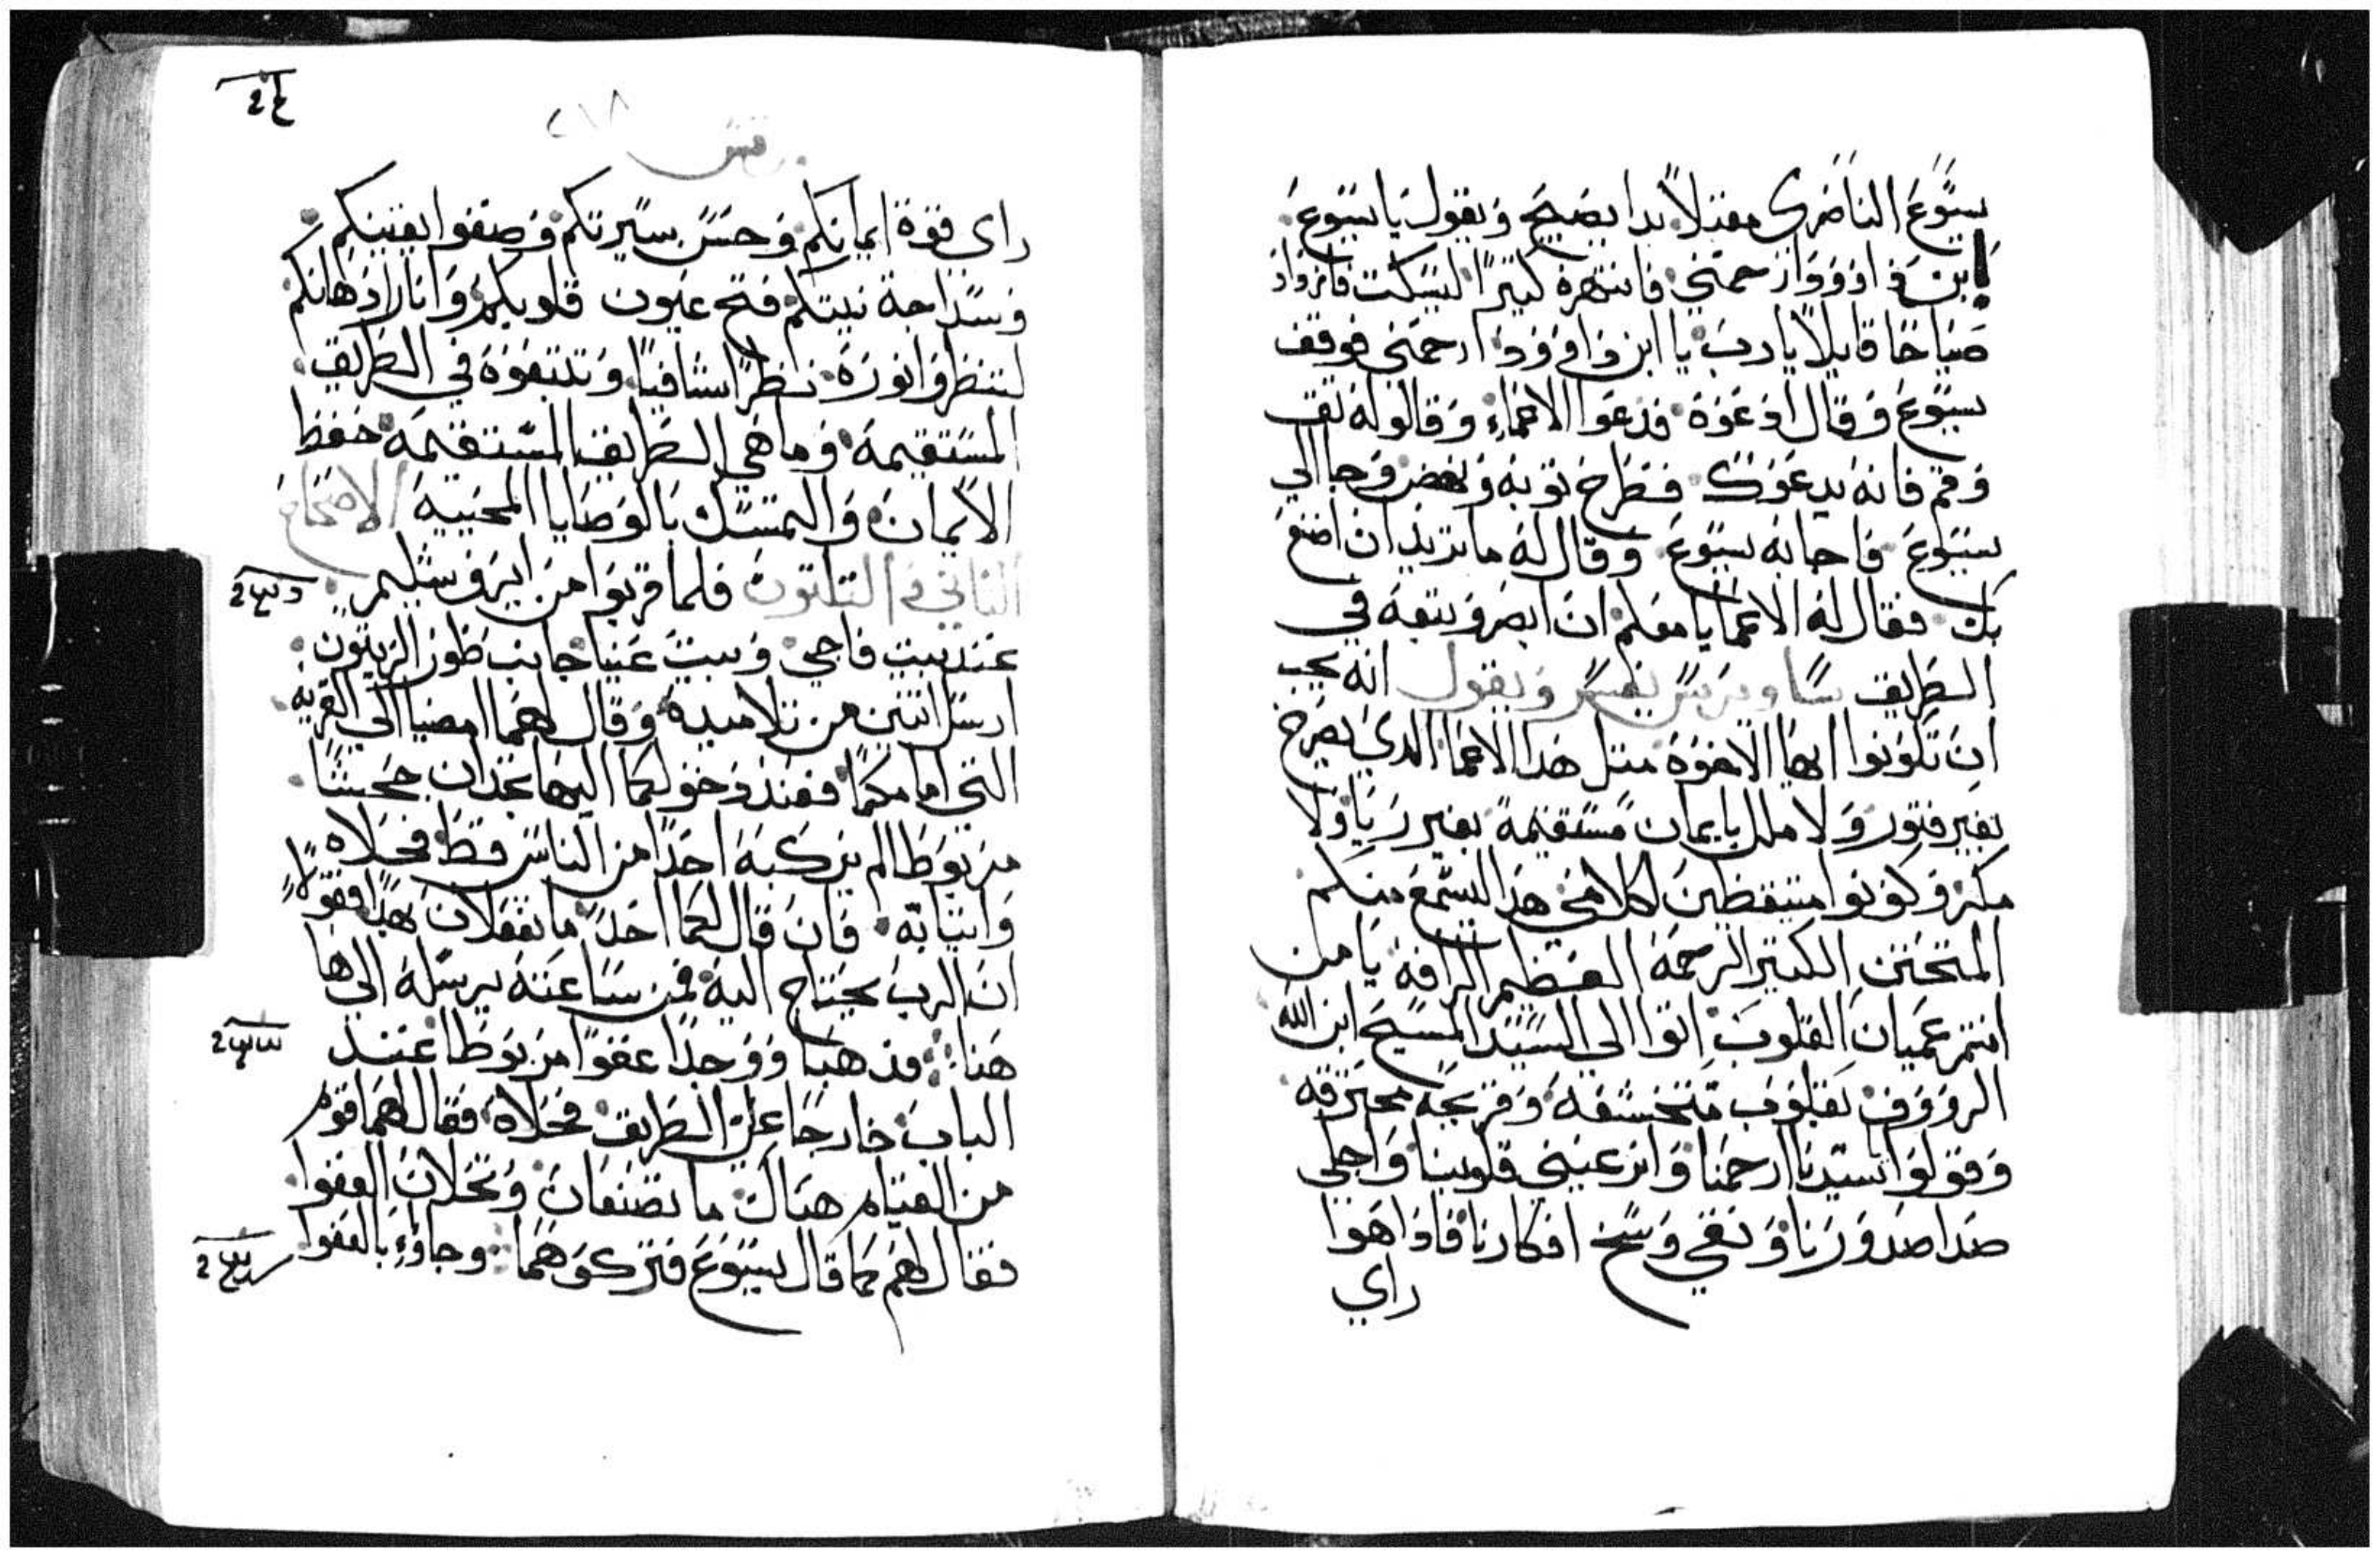 يسوع الناصري مقبلاً بدا يصيح ويقول يا يسوع
ابن داوود ارحمني فانتهره كتيرًا ليسكت فازداد
صياحًا قايلاً يارب يا ابن داوود ارحمني فوقف
يسوع وقال ادعوه فدعوا الاعماء وقالوله تق
وقم فانه يدعوك فطرح توبه ونهض وجا الي
يسوع فاجابه يسوع وقال له ما تريد ان اصنع
بك فقال له الاعما يا معلم ان ابصر وتبعه في
الطريق يفسر ويقول انه يجب
ان تكونوا ايها الاخوه متل هدا الاعما الدي يصرخ
بغير فتور ولا ملل بايمان مستقيمة بغير ريا ولا
مكر وكونوا متيقظين لكلامي هدا ليسمع منكم
المتحنن الكتير الرحمه العظيم الرافه يا من
انتم عميان القلوب اتوا الي السيد المسيح ابن الله
الرووف بقلوب متخشعه وقريحه محترقه
وقولوا يا سيدنا ارحمنا وانر عيني قلوبنا واجلي
صدا صدورنا ونقي وسخ افكارنا فاداهوا
راي
٢١٨
راي قوة ايمانكم وحسن سيرتكم وصفوا يقينكم
وسداجة نيتكم فتح عيون قلوبكم وانار ادهانكم
لتنظروا نوره نظرًا شافيًا وتتبعوه في الطريق
المستقيمه وما هي الطريق المستقيمه حفظ
الايمان والتمسك بالوصايا المحييه الاصحاح
التاني والتلتون فلما قربوا من ايروشليم
عند بيت فاجي وبيت عنيا جانب طور الزيتون
ارسل اتنين من تلاميده وقال لهما امضيا الي القريه
التي امامكما فعند دخولكما اليها تجدان جحشًا
مربوطا لم يركبه احدًا من الناس قط فحلاه
واتيا به فان قال لكما احد ما تفعلان بهدا فقولا
ان الرب يحتاج اليه فمن ساعته يرسله الي ها
هنا فدهبا ووجدا عفوًا مربوطا عند
الباب خارجًا علي الطريق فحلاه فقال لهما قوم
من القيام هناك ما تصنعان وتحلان العفوا
فقال لهم كما قال يسوع فتركوهما وجاوء بالعفوا